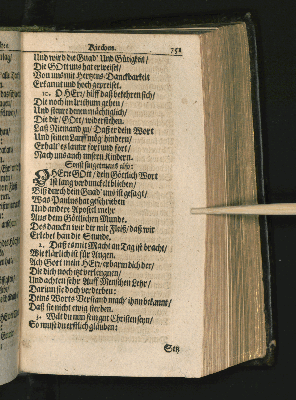 Kirchen. 751
Und wird die Gnad' Und Gütigkeit/
Die GOtt uns hat erweiset/
Von uns mit Hertzens-Danckbarkeit
Erkannt und hoch gepreiset.
10. O HErr/ hilff daß bekehren sich/
Die noch im Irrthum gehen/
Und steure denen mächtiglich/
Die dir/ GOtt/ widerstehen.
Laß Niemand uns Daß er dein Wort
Und seinen Lauff mög' hindern/
Erhalt' es lauter fort und fort/
Nach uns auch unsern Kindern.
Sonst singet man also:
O HErr GOtt/ dein Göttlich Wort
Ist lang verdunckelt blieben/
Biß durch dein Gnad' uns ist gesagt/
Was Paulus hat geschrieben
Und andere Apostel mehr
Aus dein Göttlichen Munde.
Des dancken wir dir mit Fleiß/ daß wir
Erlebet han die Stunde.
2. Daß es mit Macht an Tag ist bracht/
Wie klärlich ist für Augen.
Ach Gott mein HErr/ erbarm dich der/
Die dich noch itzt verleugnen/
Und achten sehr Auff Menschen Lehr/
Darum sie doch verderben:
Deins Worts Verstand mach' ihn bekannt/
Daß sie nicht ewig sterben.
3. Wilt du nun fein gut Christen seyn/
So must du erstlich gläuben:
Setz